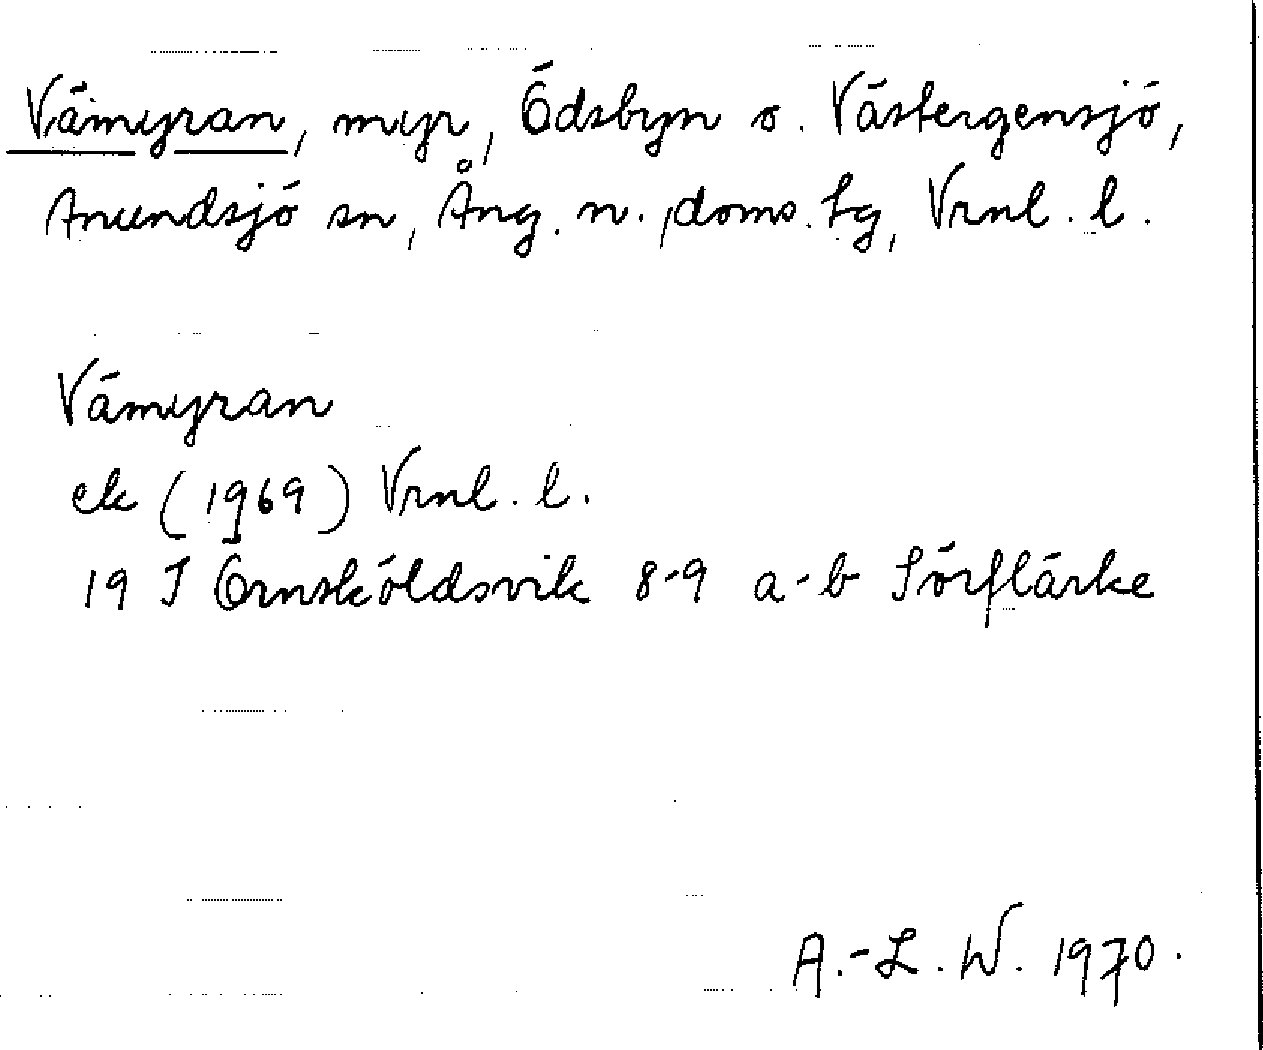 Vämyran, myr, Ödsbyn o. Västergensjö,
Anundsjö sn, Ång. n. doms. tg, Vrnl. l.
Vämyran
ek (1969) Vrnl. l.
19 J Örnsköldsvik 8-9 a-b Sörflärke
A.-L. W. 1970.